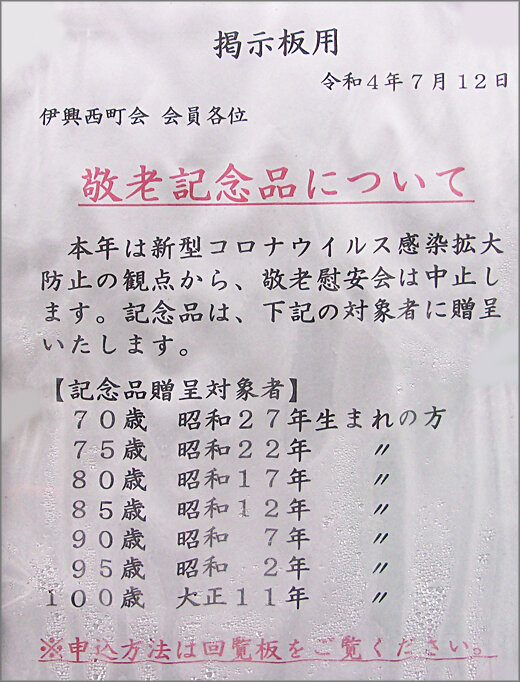 掲示板用
令和４年７月１２日
伊興西町会 会員各位
敬老記念品について
本年は新型コロナウイルス感染拡大
防止の観点から、敬老慰安会は中止し
ます。記念品は、下記の対象者に贈呈
いたします。
【記念品贈呈対象者】
７０歳 昭和２７年生まれの方
７５歳 昭和２２年 〃
８０歳 昭和１７年 〃
８５歳 昭和１２年 〃
９０歳 昭和 ７年 〃
９５歳 昭和 ２年 〃
１００歳 大正１１年 〃
※申込方法は回覧板をご覧ください。